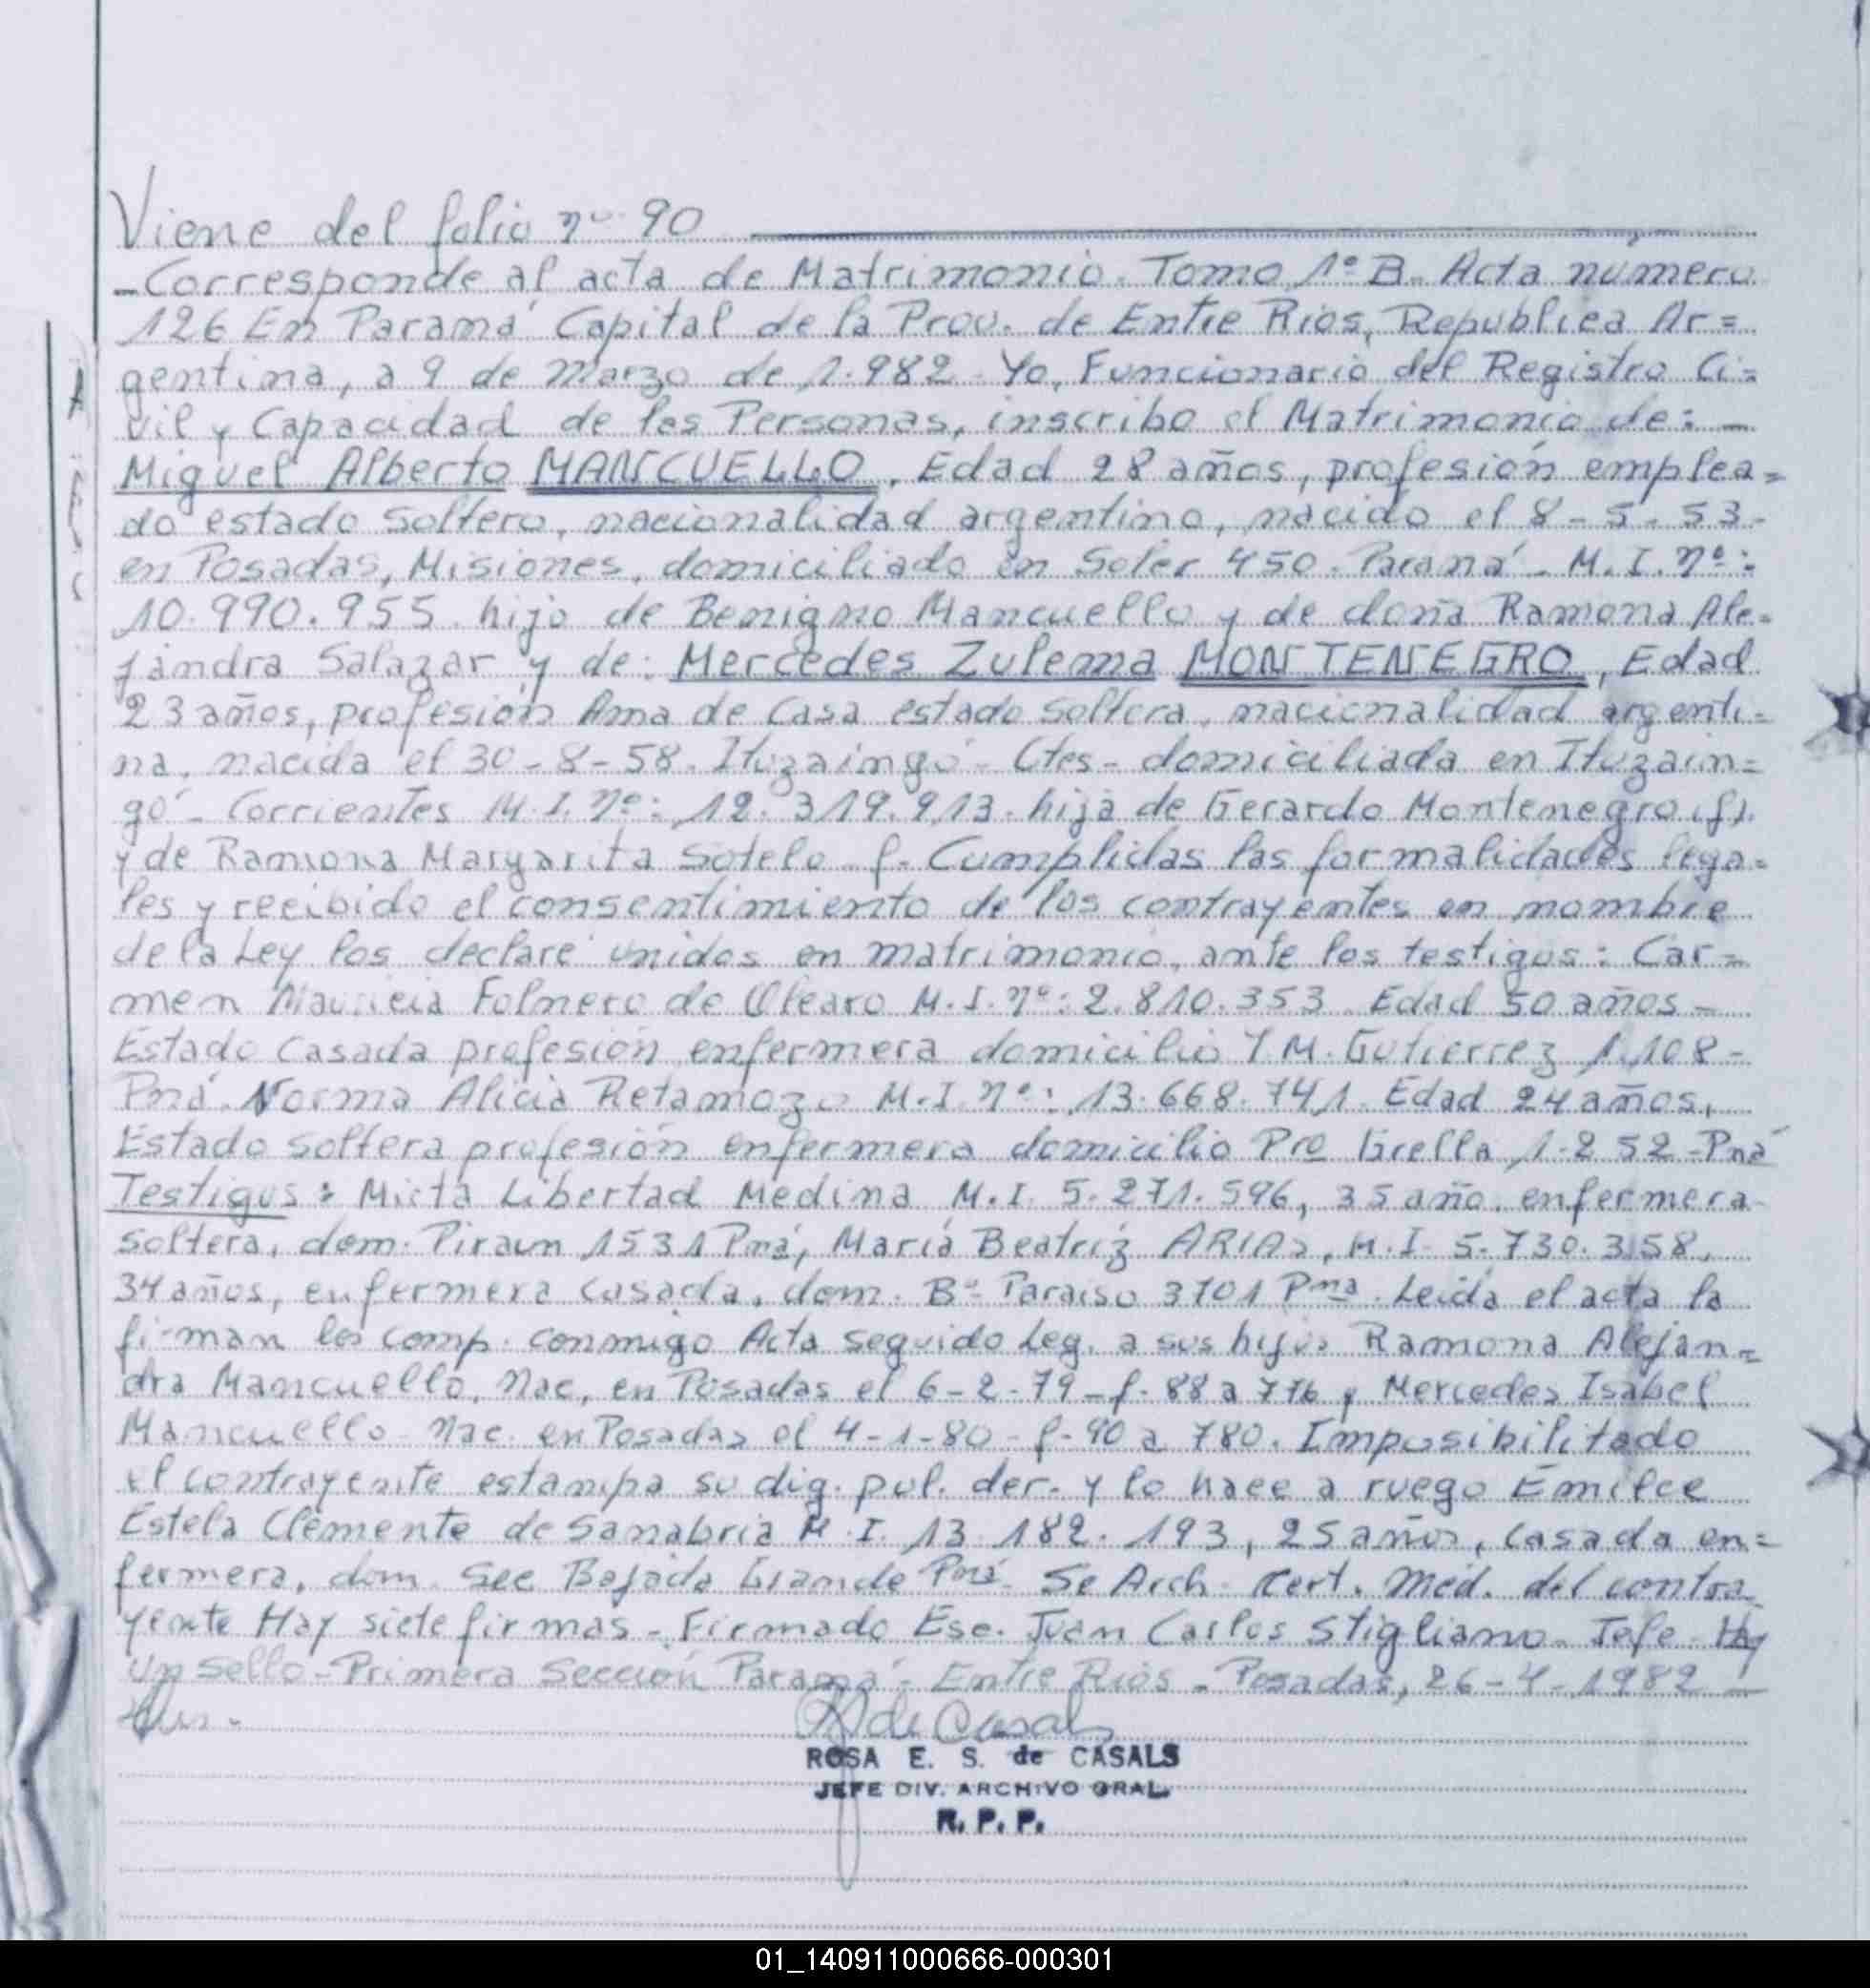 Viene del folio nº 90
- Corresponde al acta de Matrimonio. Tomo 1º B. Acta numero
126 En Paraná Capital de la Prov. de Entre Rios, Republica Ar=
gentina, a 9 de Marzo de 1.982. Yo, Funcionario del Registro Ci=
vil y Capacidad de las Personas, inscribo el Matrimonio de: -
Miguel Alberto MANCUELLO, Edad 28 años, profesión emplea=
do estado soltero, nacionalidad argentino, nacido el 8-5-53-
en Posadas, Misiones, domiciliado en Soler 450. Paraná - M.I. nº:
10.990.955. hijo de Benigno Mancuello y de doña Ramona Ale=
jandra Salazar y de: Mercedes Zulema MONTENEGRO, Edad
23 años, profesión Ama de Casa estado soltera, nacionalidad argenti=
na, nacida el 30-8-58. Ituzaingó - Ctes - domiciliada en Ituzain=
gó - Corrientes M.I. nº: 12.319.913. hija de Gerardo Montenegro (f).
y de Ramona Margarita Sotelo - f. Cumplidas las formalidades lega=
les y recibido el consentimiento de los contrayentes en nombre
de la Ley los declaré unidos en matrimonio, ante los testigos: Car=
men de M.I. nº: 2.810.353. Edad 50 años -
Estado Casada profesión enfermera domicilio M. Gutierrez 1.108-
Pná. Norma Alicia Retamozo M.I. nº: 13.668.741. Edad 24 años,
Estado soltera profesión enfermera domicilio 1.252 - Pná
Testigos: Mirta Libertad Medina M.I. 5.271.596, 35 año, enfermera
soltera, dom. 1531 Pná, María Beatríz ARIAS, M.I. 5.730.358,
34 años, enfermera casada, dom. Bº Paraiso 3701 Pná. Leida el acta la
firman los comp. conmigo Acta seguido Leg. a sus hijos Ramona Alejan=
dra Mancuello, Nac, en Posadas el 6-2-79 - f. 88 a 776 y Mercedes Isabel
Mancuello - Nac. en Posadas el 4-1-80 - f. 90 a 780. Imposibilitado
el contrayente estampa su dig. pul. der. y lo hace a ruego Emilce
Estela Clemente de Sanabria M.I. 13.182.193, 25 años, casada en=
fermera, dom. Sec Bajada Grande Pná. Se Arch. Cert. Med. del contra
yente Hay siete firmas - Firmado Esc. Juan Carlos Stigliano. Jefe. Hay
un sello - Primera Sección Paraná - Entre Rios - Posadas, 26-4-1982 -
de Casals
ROSA E. S. de CASALS
JEFE DIV. ARCHIVO GRAL.
R. P. P.
01_140911000666-000301